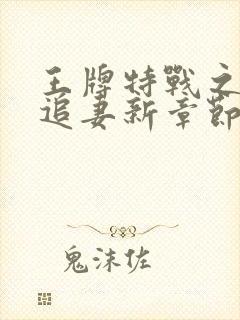 王牌特戰之
追妻新章節
鬼沫佐